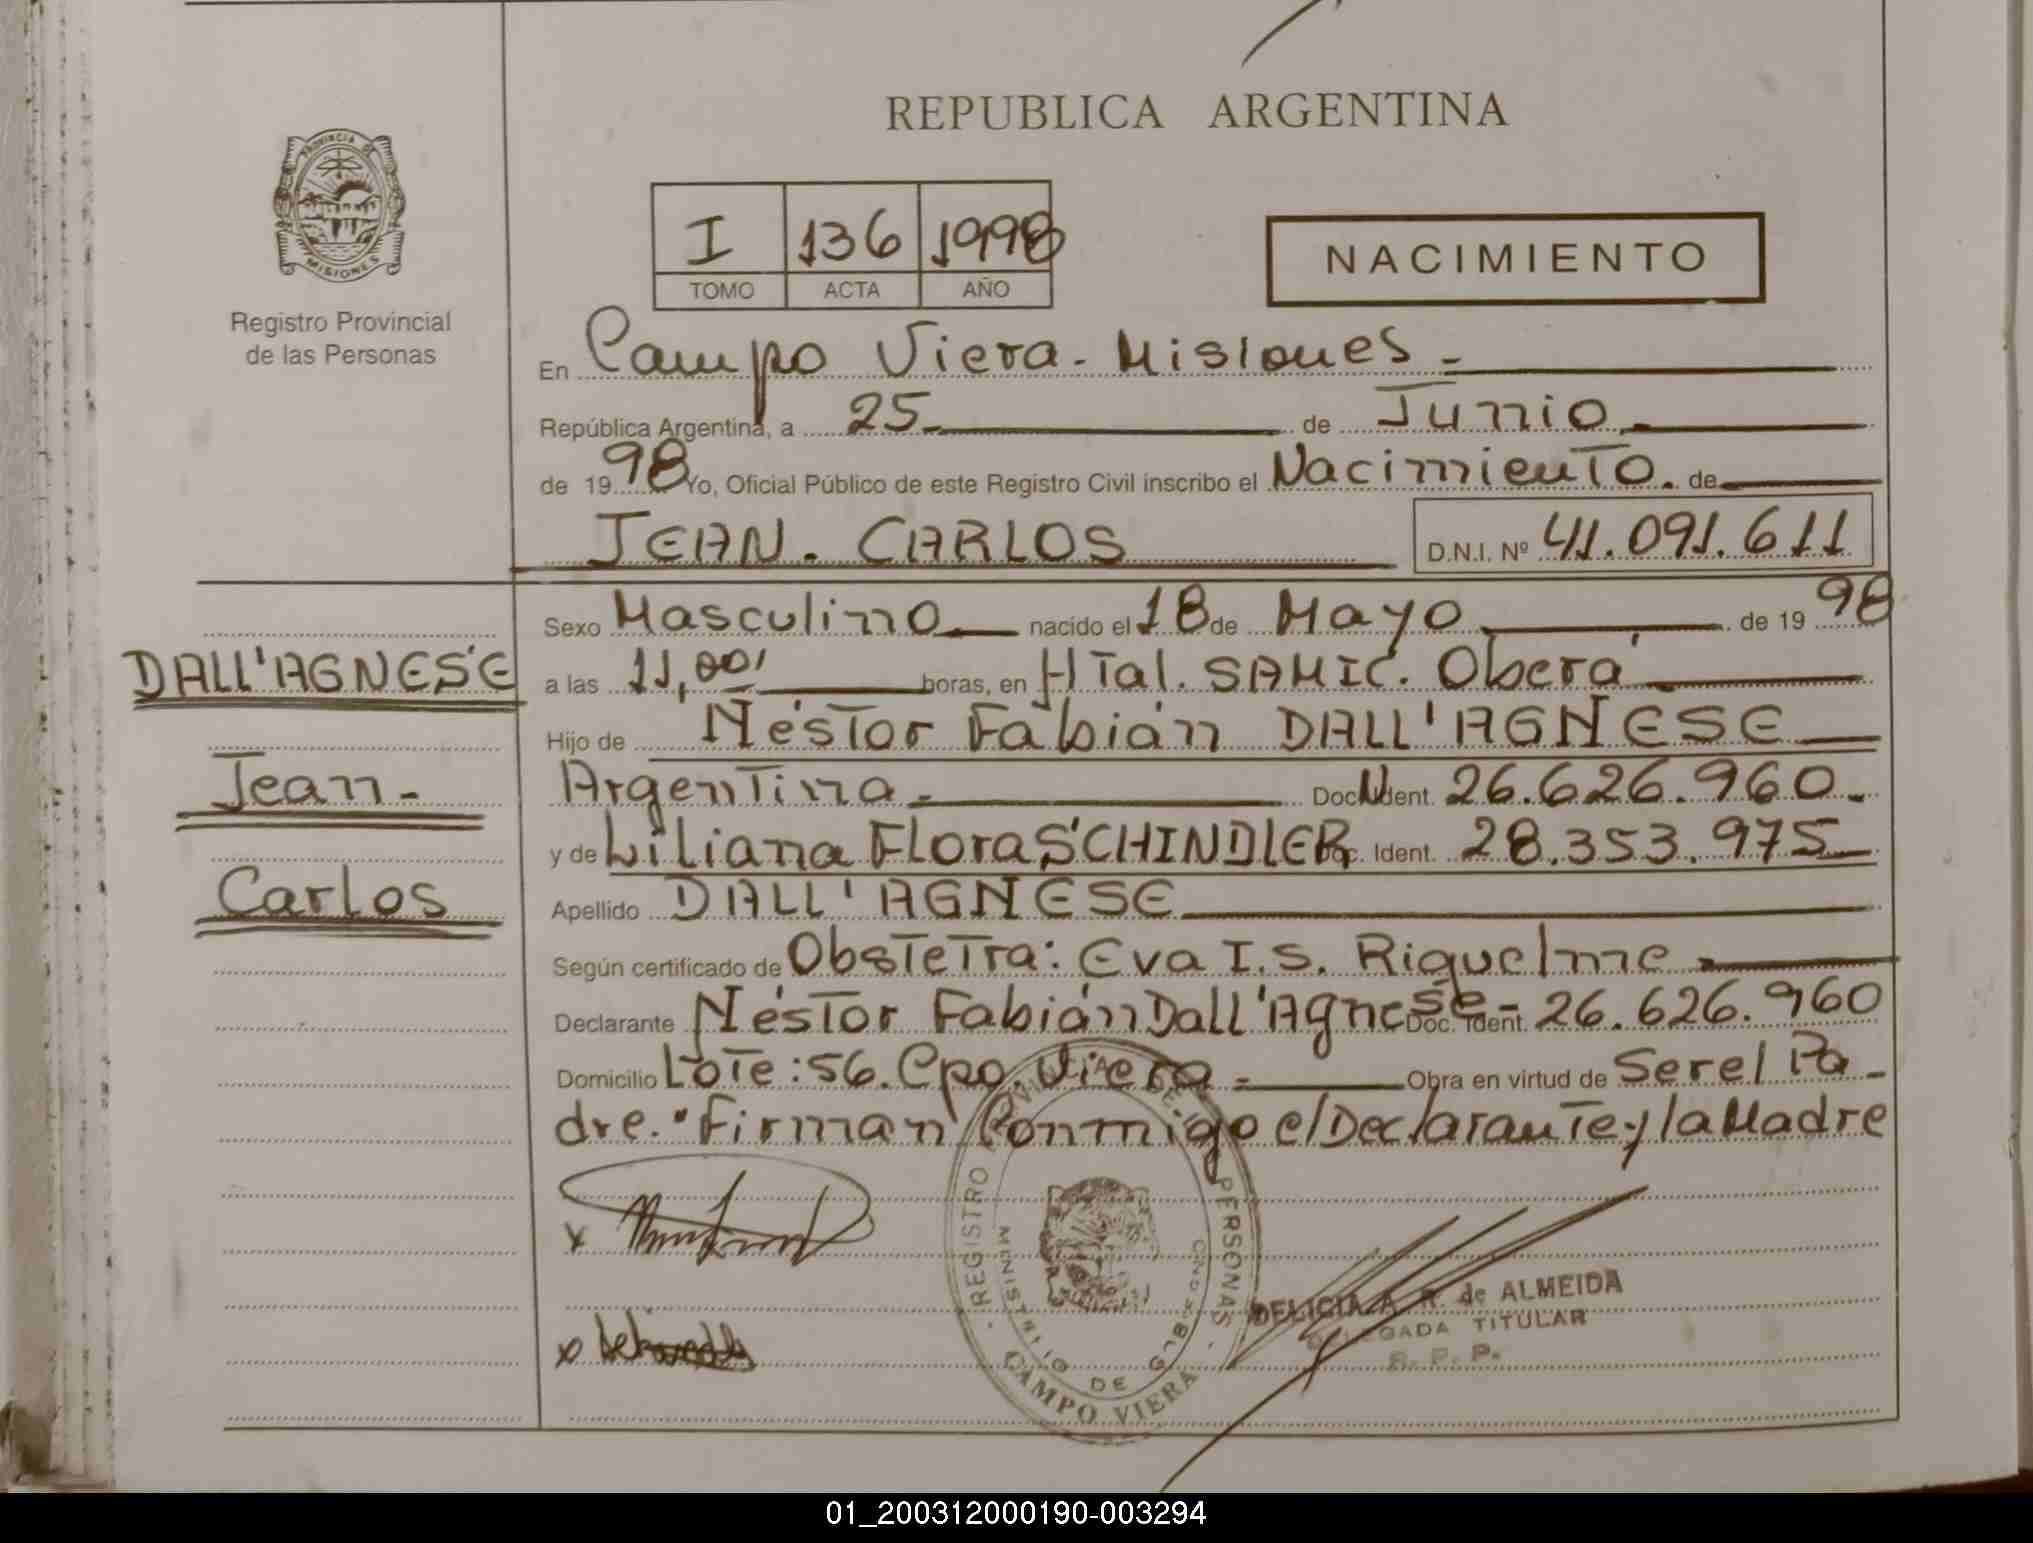 REPUBLICA ARGENTINA
PROVINCIA DE
MISIONES
Registro Provincial
de las Personas
I 136 1998
TOMO ACTA AÑO
NACIMIENTO
En Campo Viera - Misiones -
República Argentina, a 25 de Junio
de 1998 Yo, Oficial Público de este Registro Civil inscribo el Nacimiento. de
JEAN - CARLOS D.N.I. Nº 41.091.611
Sexo Masculino nacido el 18 de Mayo de 1998
DALL'AGNESE
a las 11,00' horas, en HTal. SAMIC. Oberá
Hijo de Néstor Fabián DALL'AGNESE
Jean-
Argentina - Doc. Ident. 26.626.960.-
y de Liliana Flora SCHINDLER Doc. Ident. 28.353.975
Carlos
Apellido DALL'AGNESE
Según certificado de Obstetra: Eva I.S. Riquelme
Declarante Néstor Fabián Dall'Agnese - Doc. Ident. 26.626.960
Domicilio Lote: 56. Cpo. Viera - Obra en virtud de Ser el Pa-
dre. "Firman Conmigo e/Declarante y la Madre
x
x
REGISTRO PERSONAS
MINISTERIO DE
CAMPO VIERA
DELICIA A. R. de ALMEIDA
DELEGADA TITULAR
R. P. P.
01_200312000190-003294